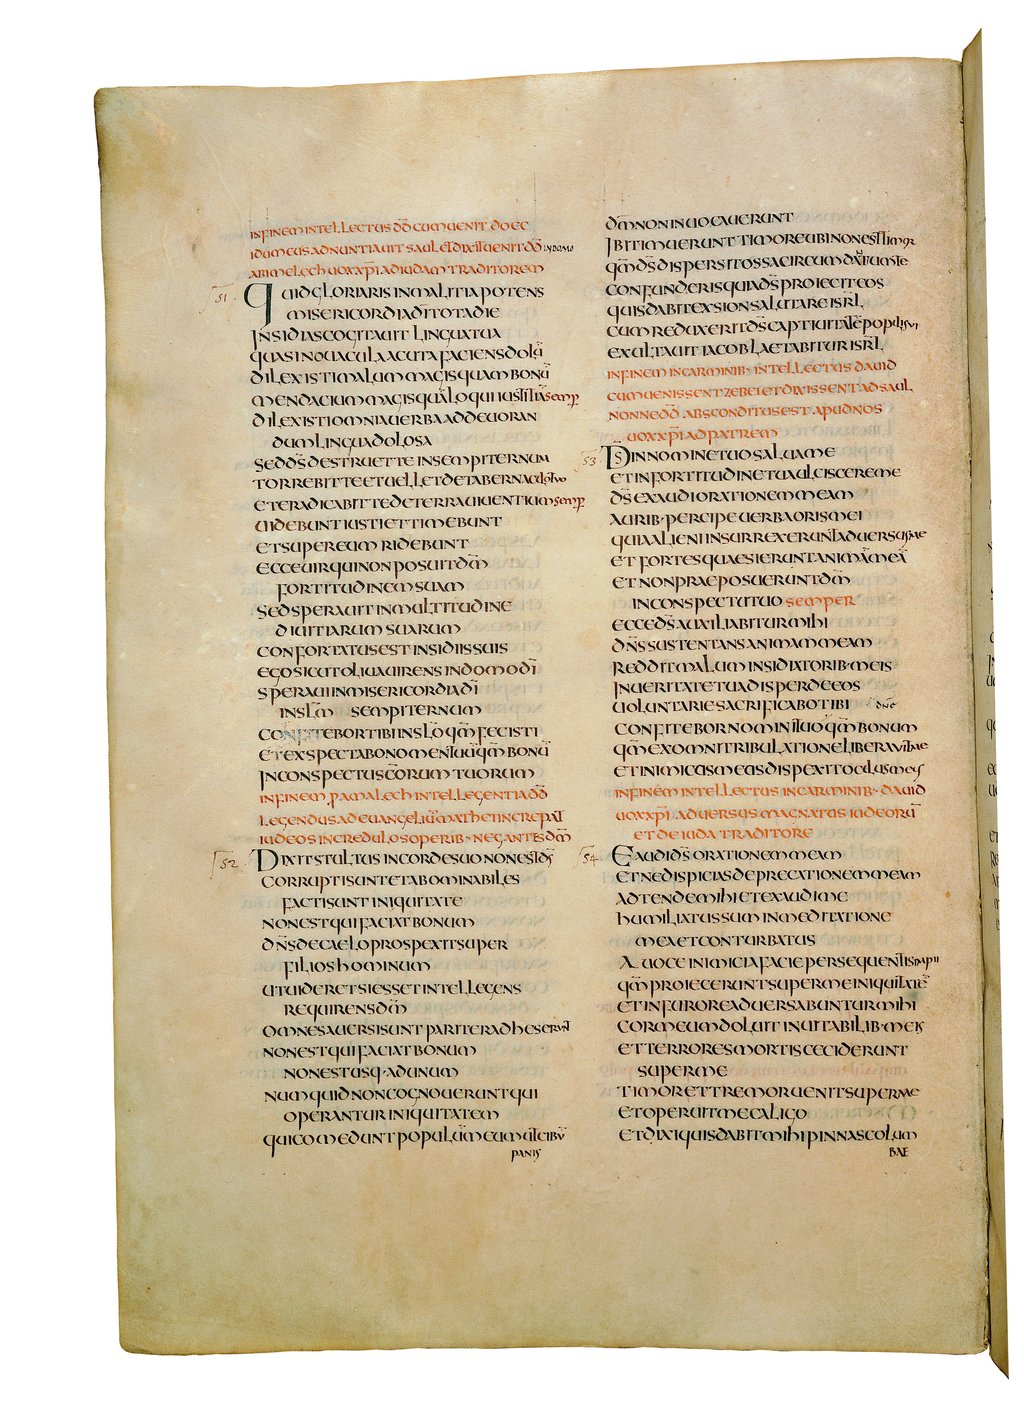 INFINEM INTELLECTUS D̅D̅ CUM UENIT DOEC
IDUMEUS ADNUNTIAUIT SAUL ET DIXIT UENIT D̅D̅ IN DOMO
ABIMELECH UOX XP̅I AD IUDAM TRADITOREM
51· QUID GLORIARIS IN MALITIA POTENS
MISERICORDIA DI̅ TOTA DIE
INSIDIAS COGITAUIT LINGUA TUA
QUASI NOUACULA ACUTA FACIENS DOLU̅
DILEXISTI MALUM MAGIS QUAM BONU̅
MENDACIUM MAGIS QUA̅ LOQUI IUSTITIA̅ SEMP̅
DILEXISTI OMNIA UERBA AD DEUORAN
DUM LINGUA DOLOSA
SED D̅S̅ DESTRUET TE IN SEMPITERNUM
TORREBIT TE ET UELLET DE TABERNACLO TUO
ET ERADICABIT TE DE TERRA UIUENTIUM SEMP̅
UIDEBUNT IUSTI ET TIMEBUNT
ET SUPER EUM RIDEBUNT
ECCE UIR QUI NON POSUIT D̅M̅
FORTITUDINEM SUAM
SED SPERAUIT IN MULTITUDINE
DIUITIARUM SUARUM
CONFORTATUS EST INSIDIIS SUIS
EGO SICUT OLIUA UIRENS IN DOMO DI̅
SPERAUI IN MISERICORDIA DI̅
IN SLM̅ SEMPITERNUM
CONFITEBOR TIBI IN SLO̅ QM̅ FECISTI
ET EXSPECTABO NOMEN TUU̅ QM̅ BONU̅
IN CONSPECTU SCO̅RUM TUORUM
INFINEM P̱ AMALECH INTELLEGENTIA D̅D̅
LEGENDUS AD EUANGELIU̅ MATHEI INCREPAT
IUDEOS INCREDULOS OPERIB· NEGANTES D̅M̅
52· DIXIT STULTUS IN CORDE SUO NON EST D̅S̅
CORRUPTI SUNT ET ABOMINABILES
FACTI SUNT INIQUITATE
NON EST QUI FACIAT BONUM
D̅N̅S̅ DE CAELO PROSPEXIT SUPER
FILIOS HOMINUM
UT UIDERET SI ESSET INTELLEGENS
REQUIRENS D̅M̅
OMNES AUERSI SUNT PARITER ADHESERUNT
NON EST QUI FACIAT BONUM
NON EST USQ· AD UNUM
NUMQUID NON COGNOUERUNT QUI
OPERANTUR INIQUITATEM
QUI COMEDUNT POPULUM MEUM UT CIBU̅
PANIS
D̅M̅ NON INUOCAUERUNT
IBI TIMUERUNT TIMORE UBI NON EST TIMOR
QM̅ D̅S̅ DISPERSIT OSSA CIRCUMDANTIUM TE
CONFUNDERIS QUIA D̅S̅ PROIECIT EOS
QUIS DABIT EX SION SALUTARE ISRL̅
CUM REDUXERIT D̅S̅ CAPTIUITATE̅ POPULI SUI
EXULTAUIT IACOB LAETABITUR ISRL̅
INFINEM IN CARMINIB· INTELLECTUS DAUID
CUM UENISSENT ZEBEI ET DIXISSENT AD SAUL
NONNE D̅D̅ ABSCONDITUS EST APUD NOS
UOX XP̅I AD PATREM
53· D̅S̅ IN NOMINE TUO SALUA ME
ET IN FORTITUDINE TUA ULCISCERE ME
D̅S̅ EXAUDI ORATIONEM MEAM
AURIB· PERCIPE UERBA ORIS MEI
QUIA ALIENI INSURREXERUNT ADUERSUS ME
ET FORTES QUAESIERUNT ANIMA̅ MEA̅
ET NON PRAEPOSUERUNT D̅M̅
IN CONSPECTU TUO SEMPER
ECCE D̅S̅ AUXILIABITUR MIHI
D̅N̅S̅ SUSTENTANS ANIMAM MEAM
REDDIT MALUM INSIDIATORIB· MEIS
IN UERITATE TUA DISPERDE EOS
UOLUNTARIE SACRIFICABO TIBI D̅N̅E̅
CONFITEBOR NOMINI TUO QM̅ BONUM
QM̅ EX OMNI TRIBULATIONE LIBERAUIT ME
ET INIMICUS MEUS DISPEXIT OCULUS MEUS
INFINEM INTELLECTUS IN CARMINIB· DAUID
UOX XP̅I ADUERSUS MAGNATUS IUDEORU̅
ET DE IUDA TRADITORE
54· EXAUDI D̅S̅ ORATIONEM MEAM
ET NE DISPICIAS DEPRECATIONEM MEAM
ADTENDE MIHI ET EXAUDI ME
HUMILIATUS SUM IN MEDITATIONE
MEA ET CONTURBATUS
A UOCE INIMICI A FACIE PERSEQUENTIS IMPII
QM̅ PROIECERUNT SUPER ME INIQUITATE̅
ET IN FURORE ADUERSABUNTUR MIHI
COR MEUM DOLUIT IN UITALIB· MEIS
ET TERRORES MORTIS CECIDERUNT
SUPER ME
TIMOR ET TREMOR UENIT SUPER ME
ET OPERUIT ME CALIGO
ET DIXI QUIS DABIT MIHI PINNAS COLUM
BAE